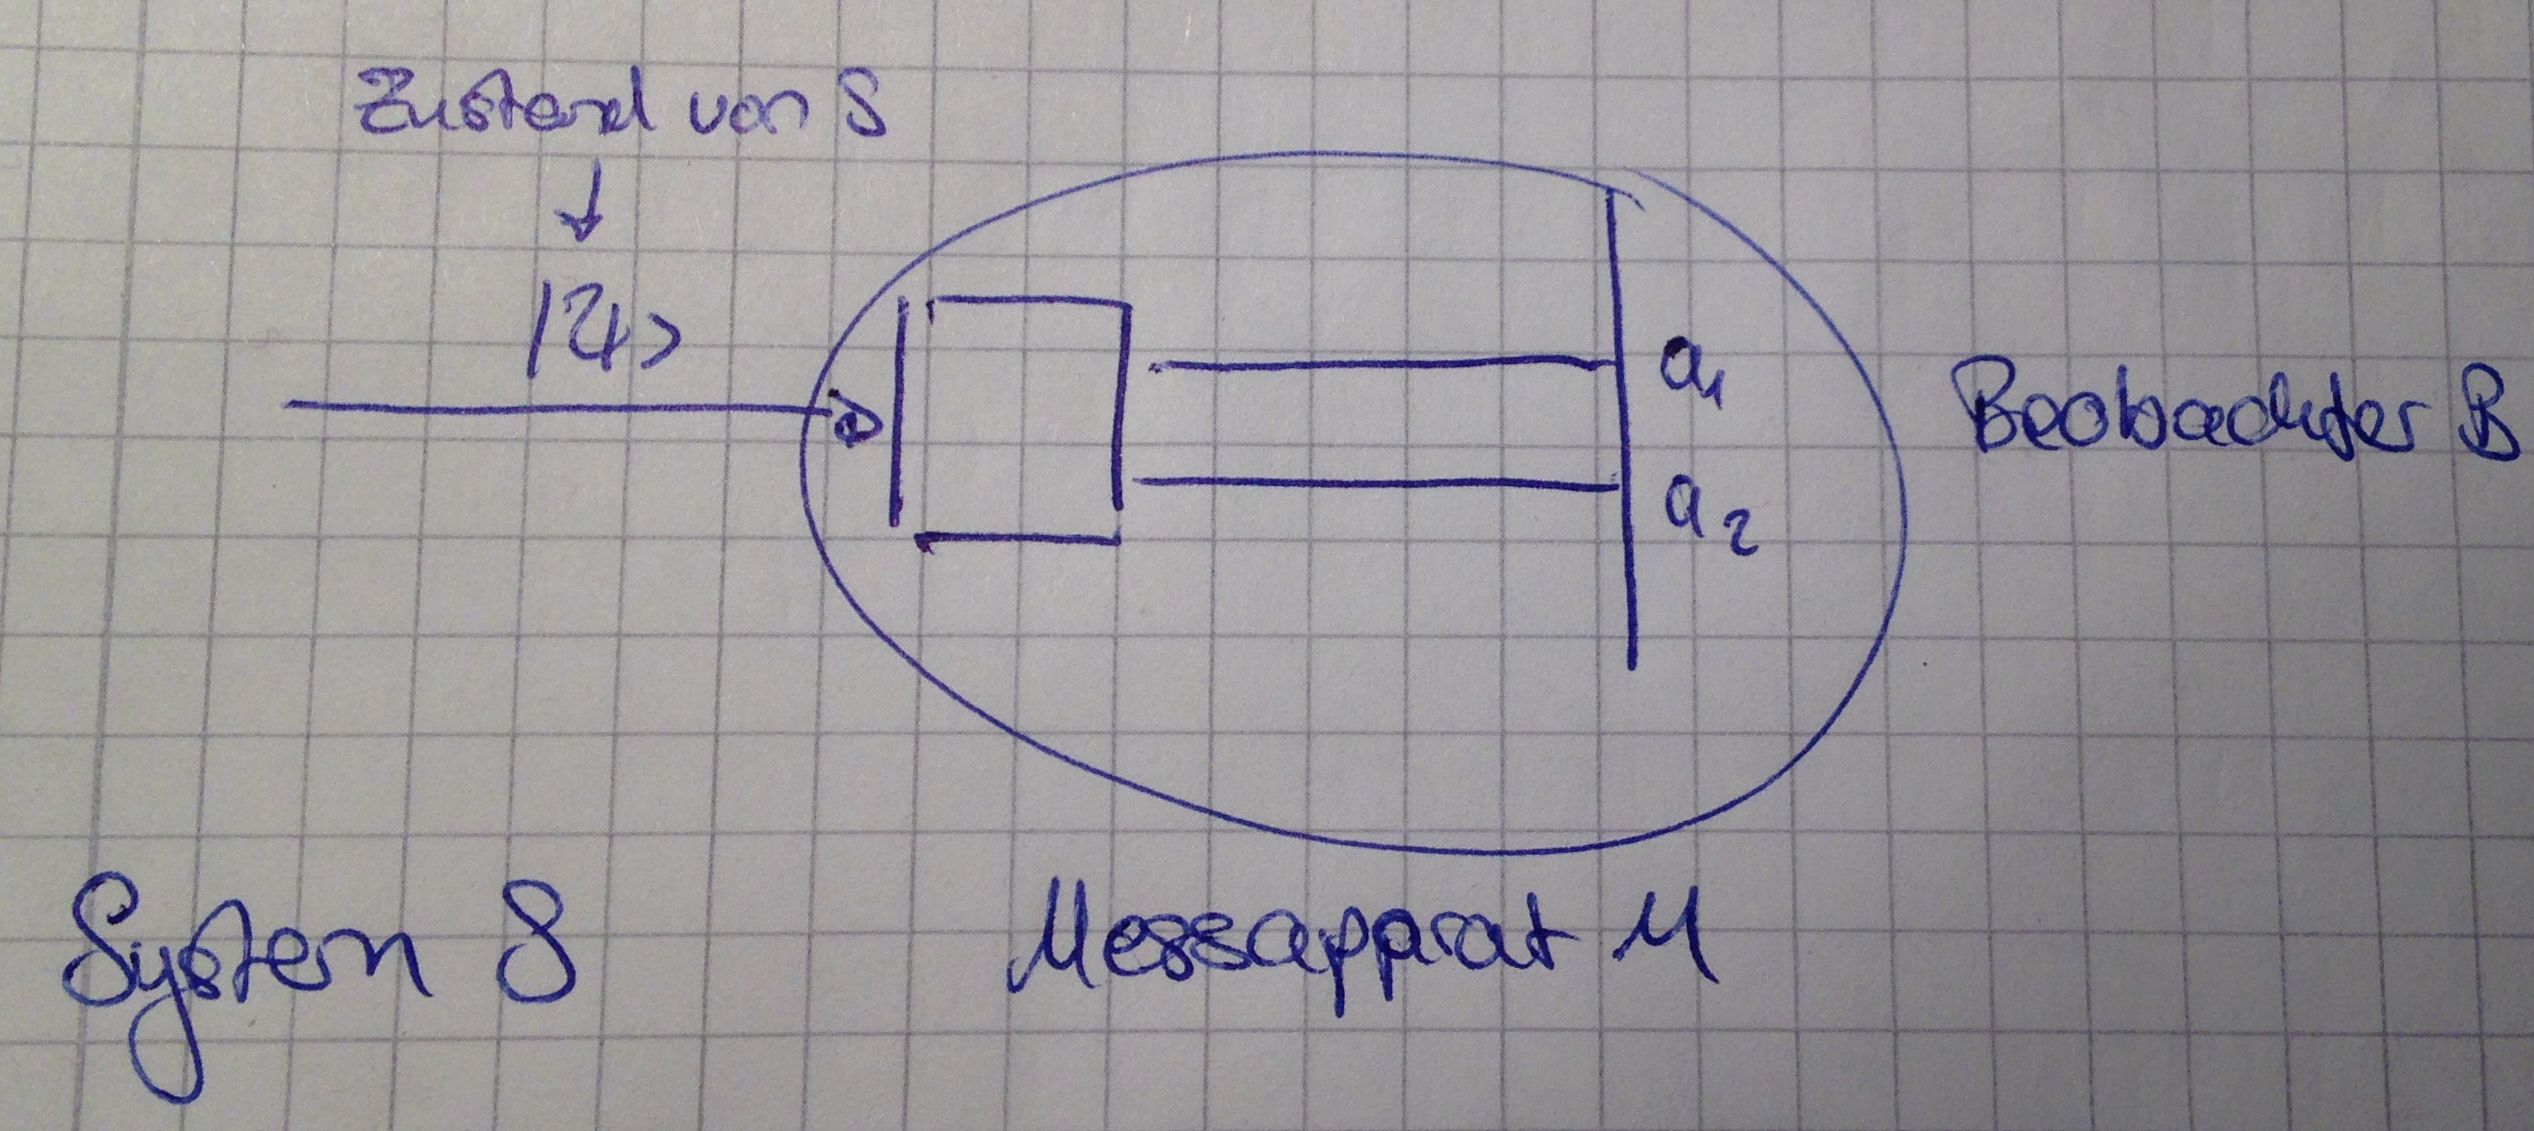 Zustand von S
|ψ>
a₁
Beobachter B
a₂
System S
Messapparat M